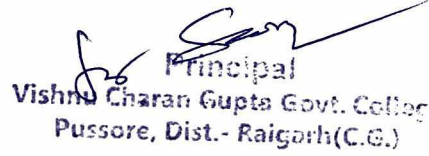 Principal
Vishnu Charan Gupta Govt. Colleg
Pussore, Dist.- Raigarh(C.G.)